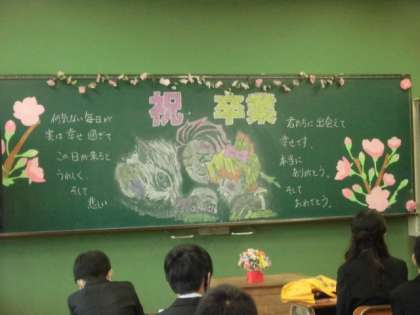 祝 卒業
何気ない毎日が
実は幸せ過ぎて
この日が来ると
うれしく、
そして
悲しい
君たちに出会えて
幸せです。
本当に
ありがとう。
そして
おめでとう。